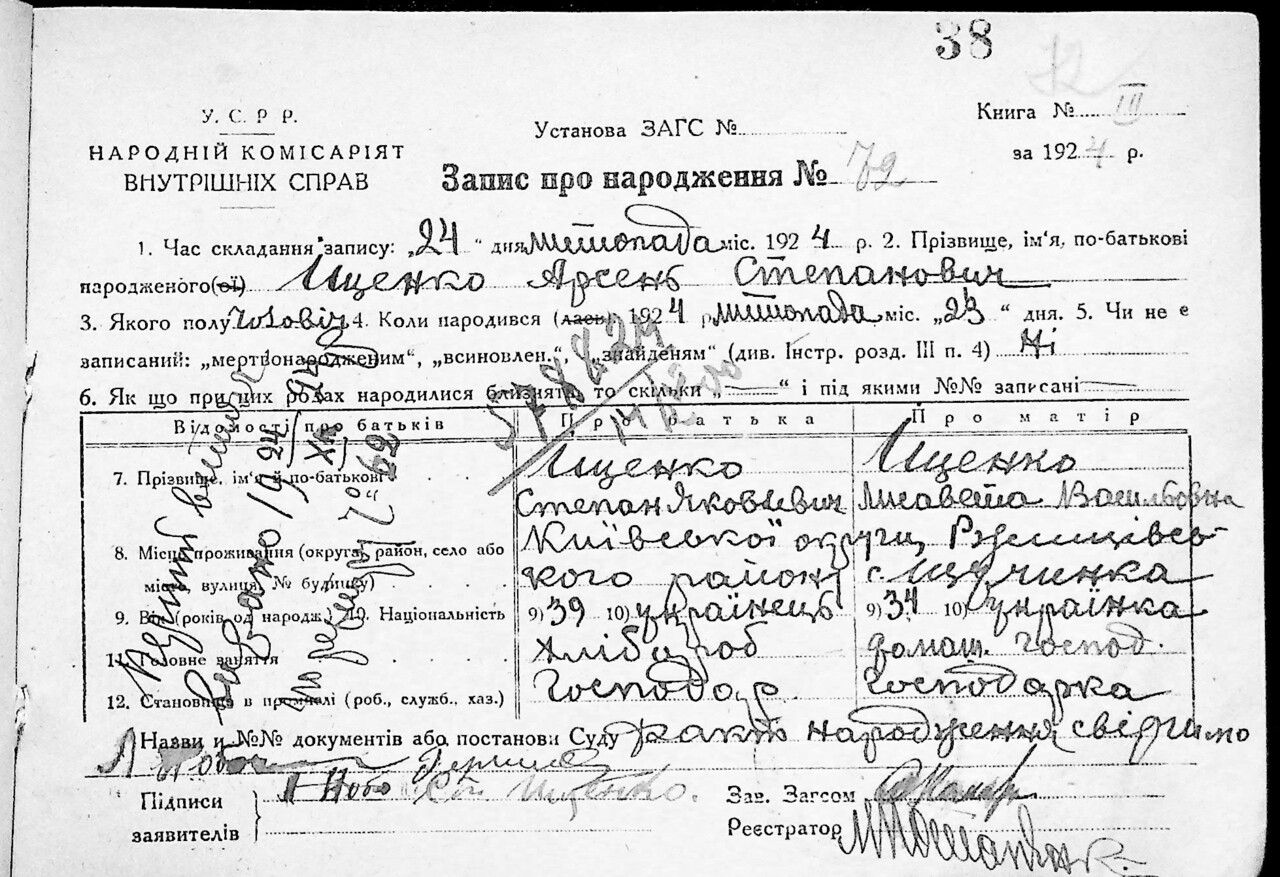 38
72
У. С. Р Р.
НАРОДНІЙ КОМІСАРІЯТ
ВНУТРІШНІХ СПРАВ
Установа ЗАГС №
Книга № III
за 1924 р.
Запис про народження № 72
1. Час складання запису: „24 “ дня листопада міс. 1924 р. 2. Прізвище, ім'я, по-батькові
народженого(ої) Іщенко Арсень Степанович
3. Якого полу чоловіч 4. Коли народився (лась) 1924 р листопада міс. „23 “ дня. 5. Чи не є
записаний: „мертвонародженим“, „всиновлен.“, „знайденям“ (див. Інстр. розд. III п. 4) Ні
6. Як що при цих родах народилися близнята, то скільки „ “ і під якими №№ записані
Відомості про батьків Про батька Про матір
7. Прізвище, ім'я й по-батькові Іщенко Іщенко
Степан Яковлевич Лисавета Васильовна
8. Місце проживання (округа, район, село або Київської округи, Ржищівсь-
місто, вулиця, № будинку) кого району с. Щучинка
9. Вік (років од народж.) 10. Національність 9) 39 10) українець 9) 34 10) українка
11. Головне заняття Хлібороб домаш. господ.
12. Становище в промислі (роб., служб., хаз.) Господар. Господарка
Назви и №№ документів або постанови Суду факт народження свідчимо
Підписи
заявителів
Іщенко.
Зав. Загсом
Реєстратор